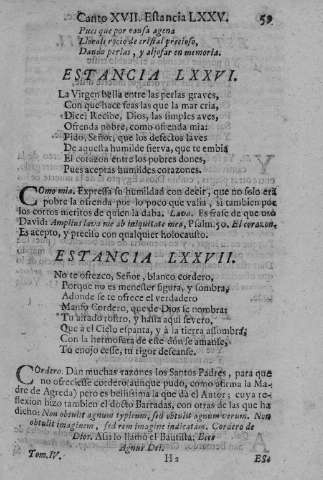 Canto XVII. Estancia LXXV. 59
Pues que por causa agena
Llorais rocio de cristal precioso,
Dando perlas, y aljofar en memoria.
ESTANCIA LXXVI.
La Virgen bella entre las perlas graves,
Con que hace feas las que la mar cria,
Dice: Recibe, Dios, las simples aves,
Ofrenda pobre, como ofrenda mia:
Pido, Señor, que los defectos laves
De aquesta humilde sierva, que te embia
El corazon entre los pobres dones,
Pues aceptas humildes corazones.
Como mia. Expressa su humildad con decir, que no solo era
pobre la ofrenda por lo poco que valia, si tambien por
los cortos meritos de quien la daba. Lava. Es frase de que usò
David: Amplius lava me ab iniquitate mea, Psalm. 50. El corazon.
Es acepto, y preciso con qualquier holocausto.
ESTANCIA LXXVII.
No te ofrezco, Señor, blanco cordero,
Porque no es menester figura, y sombra,
Adonde se te ofrece el verdadero
Manso Cordero, que de Dios se nombra:
Tu airado rostro, y hasta aqui severo,
Que a el Cielo espanta, y à la tierra assombra,
Con la hermosura de este dòn se amanse,
Tu enojo cesse, tu rigor descanse.
Cordero. Dan muchas razones los Santos Padres, para que
no ofreciesse cordero aunque pudo, como afirma la Ma-
dre de Agreda) pero es bellissima la que dà el Autor; cuya re-
flexion hizo tambien el docto Barradas, con otras de las que ha
dicho: Non obtulit agnum typicum, sed obtulit agnum verum. Non
obtulit imaginem, sed rem imagine indicatam. Cordero de
Dios. Assi lo llamò el Bautista: Ecce
Agnus Dei.
Tom. IV. H 2 Es-